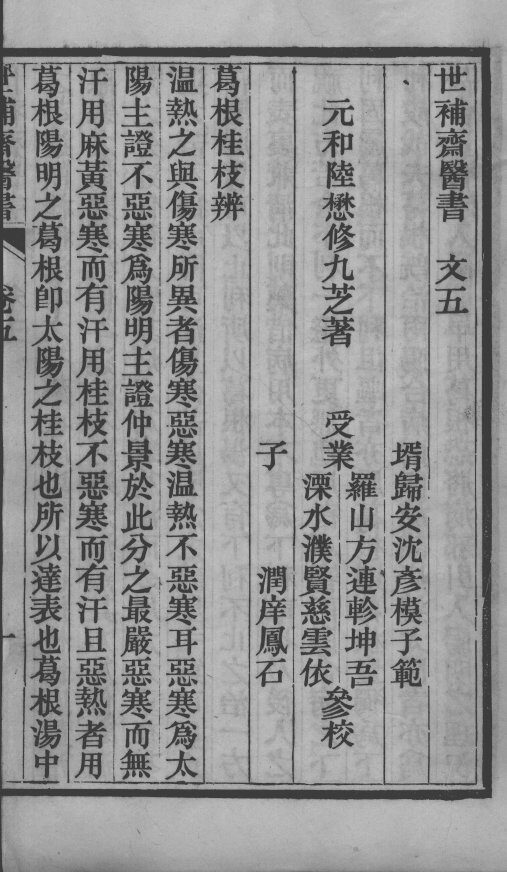 世補齋醫書 文五
壻歸安沈彥模子範
元和陸懋修九芝著 受業
羅山方連軫坤吾
溧水濮賢慈雲依
參校
子 潤庠鳳石
葛根桂枝辨
溫熱之與傷寒所異者傷寒惡寒溫熱不惡寒耳惡寒爲太
陽主證不惡寒爲陽明主證仲景於此分之最嚴惡寒而無
汗用麻黃惡寒而有汗用桂枝不惡寒而有汗且惡熱者用
葛根陽明之葛根卽太陽之桂枝也所以達表也葛根湯中
世補齋醫書 卷五 一